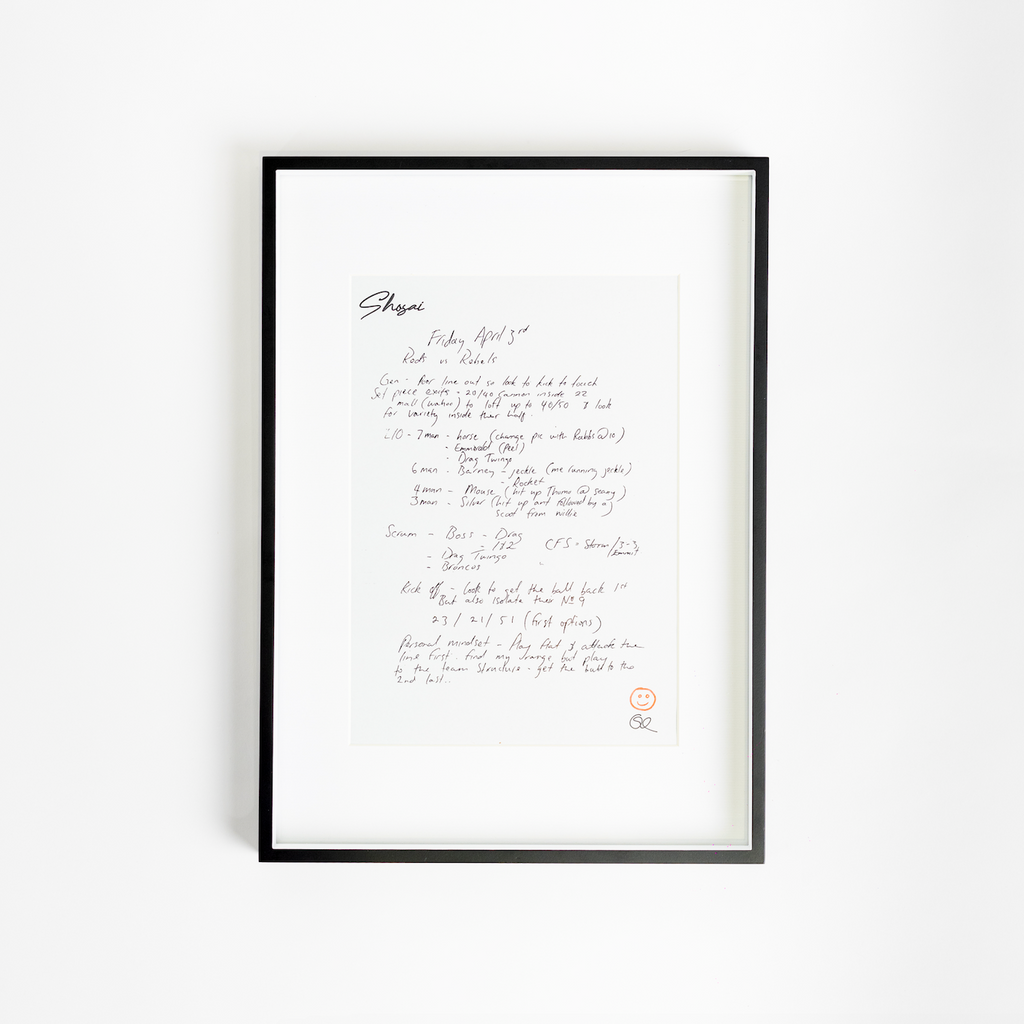 Shosai
Friday April 3rd
Reds vs Rebels
Gen - Poor line out so look to kick to touch
Set piece exits - 20/40 Cannon inside 22
mall () to loft up to 40/50 & look
for variety inside their half.
L/O - 7 man - horse (change pic with Rabbs @ 10)
- Emmbold (feel)
- Drag Twingo
6 man - Barney - jeckle (me running jeckle)
- Rocket
4 man - Mouse (hit up Thomo @ seany)
3 man - Silver (hit up ant followed by a
scoot from willie
Scrum - Boss - Drag
- 1x2
CFS = Storm / 3-3
- Drag Twingo
- Broncos
Kick off - look to get the ball back 1st
But also isolate their No 9
23 / 21 / 51 (first options)
Personal mindset - Play flat & attack the
line first. find my range but play
to the team structure - get the ball to the
2nd last..